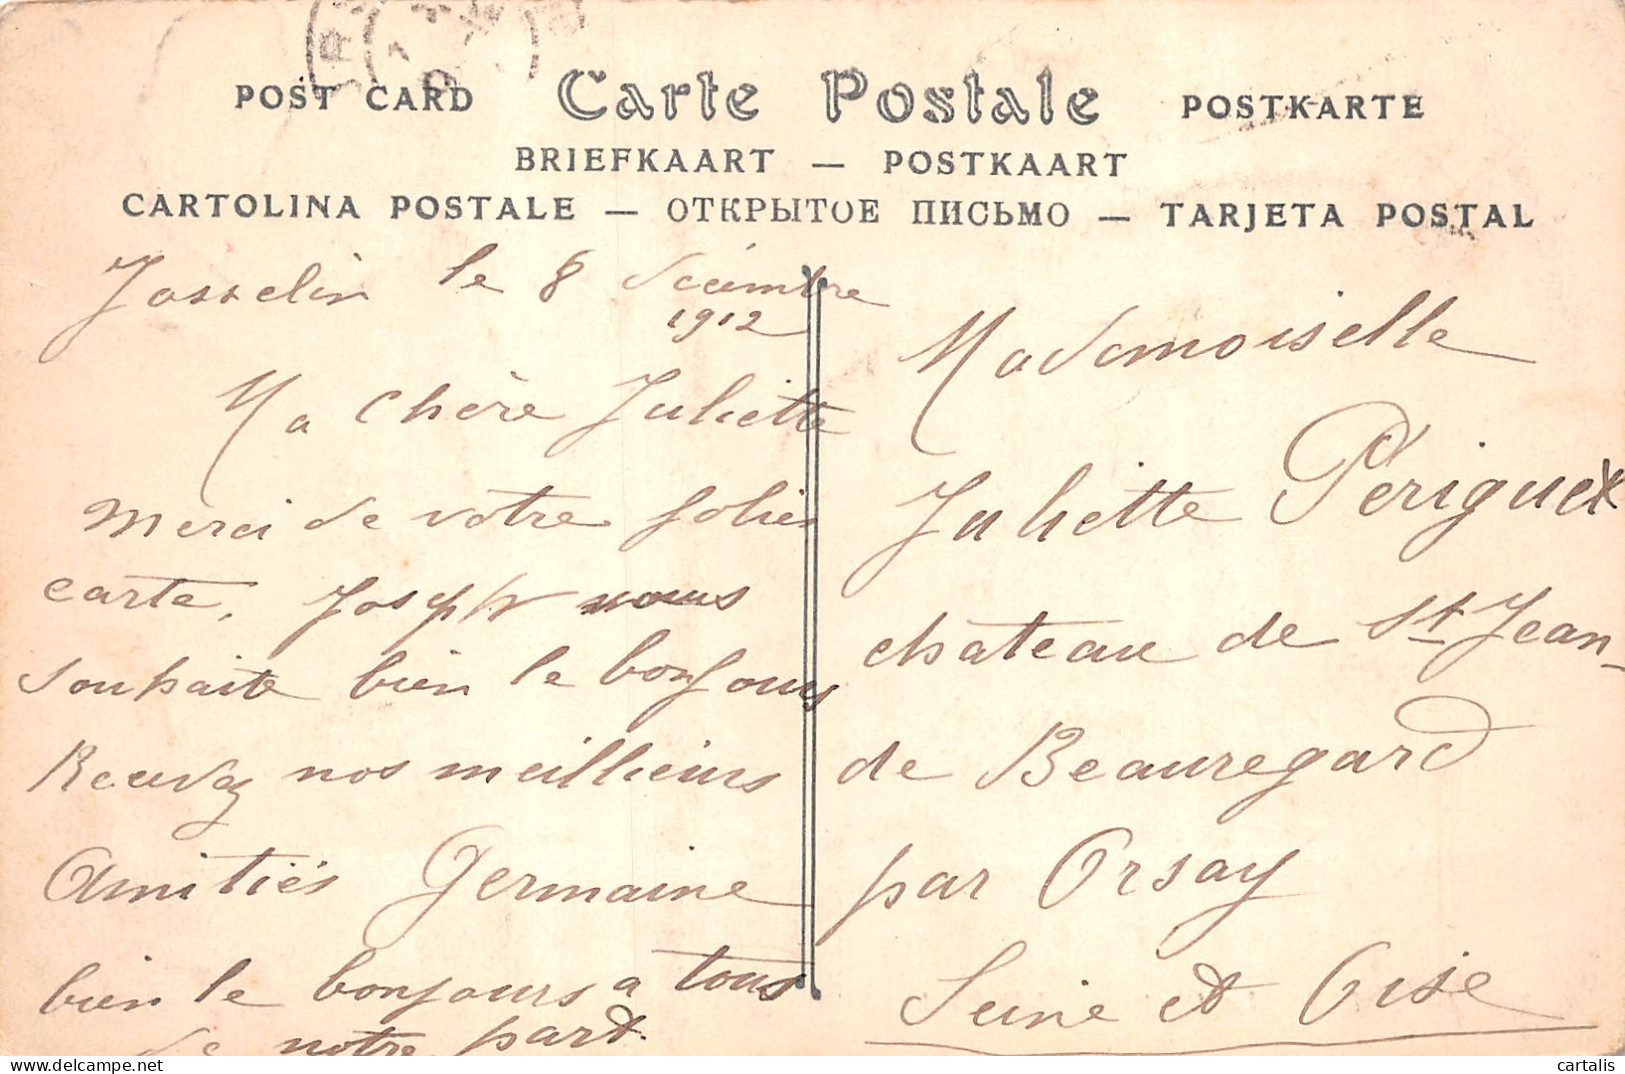 POST CARD Carte Postale POSTKARTE
BRIEFKAART — POSTKAART
CARTOLINA POSTALE — ОТКРЫТОЕ ПИСЬМО — TARJETA POSTAL
Josselin le 8 décembre
1912
Ma chère Juliette
merci de votre jolies
carte, Joseph vous
souhaite bien le bonjours
Recevez nos meillieurs
Amitiés Germaine
bien le bonjours a tous
de notre part.
Mademoiselle
Juliette Périguex
château de St Jean-
de Beauregard
par Orsay
Seine et Oise
cartalis